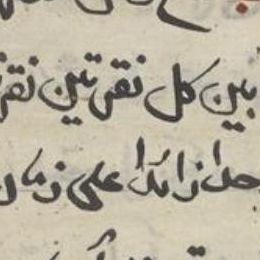 بين كل نقرتين نقر
حدا زائدا على زما